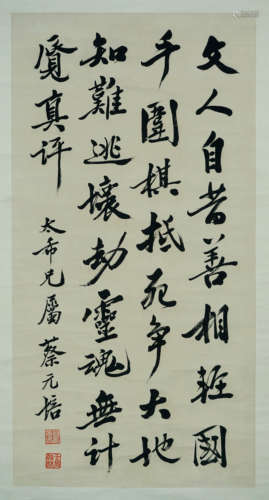 文人自昔善相輕國
手圍棋抵死争大地
知難逃壞劫靈魂無計
真評
太希兄屬 蔡元培